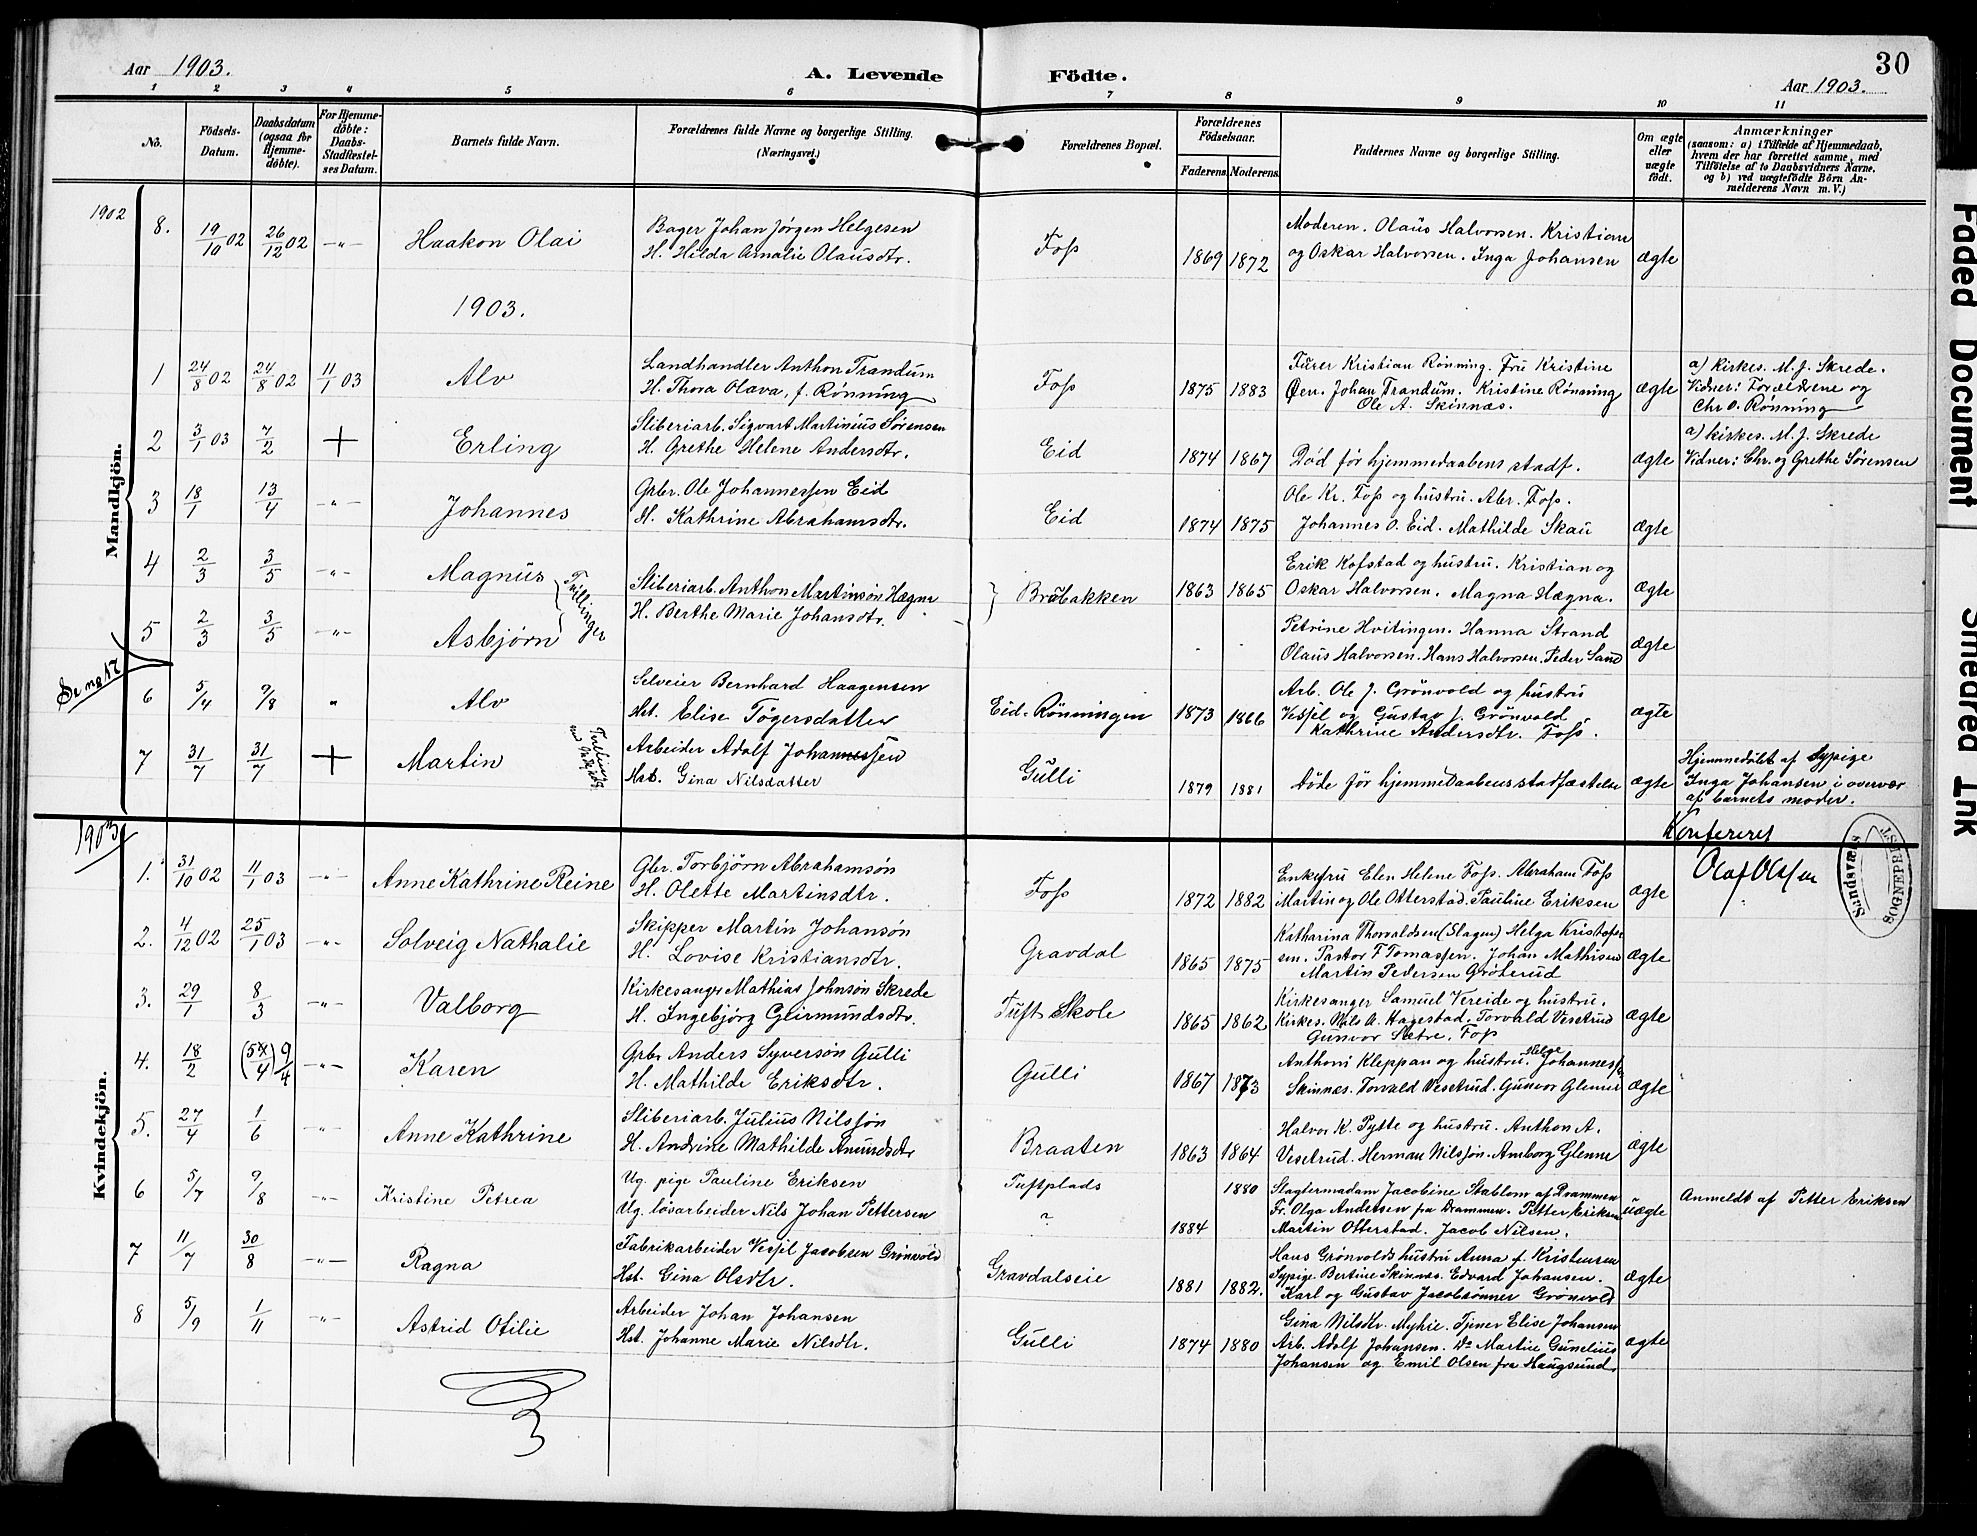 30
Aar 1903.
A. Levende Födte.
Aar 1903.
1 2 3 4 5 6 7 8 9 10 11
No.
Födsels-Datum.
Daabsdatum (ogsaa for Hjemme-döbte).
For Hjemme-döbte: Daabs-Stadfæstel-ses Datum.
Barnets fulde Navn.
Forældrenes fulde Navne og borgerlige Stilling.
(Næringsvei.)
Forældrenes Bopæl.
Forældrenes Födselsaar.
Faderens. Moderens.
Faddernes Navne og borgerlige Stilling.
Om ægte eller uægte födt.
Anmærkninger
(saasom: a) i Tilfælde af Hjemmedaab,
hvem der har forrettet samme, med
Tilföielse af to Daabsvidners Navne,
og b) ved uægtefödte Börn An-
melderens Navn m. V.)
Mandkjön.
1902
8. 19/10 02 26/12 02 -"- Haakon Olai
Bager Johan Jørgen Helgesen
H. Hilda Amalie Olausdtr.
Foss 1869 1872
Moderen. Olaus Halvorsen. Kristian
og Oskar Halvorsen. Inga Johansen
ægte
1903.
1 24/8 02 24/8 02 11/1 03 Alv
Landhandler Anthon Trandum
H. Thora Olava, f. Rønning
Foss 1875 1883
Furer Kristian Rønning. Fru Kristine
Øen. Johan Trandum. Kristine Rønning
Ole A. Skinnæs.
ægte
a) Kirkes. M. J. Skrede.
Vidner: Forældrene og
Chr O. Rønning
2 3/1 03 7/2 + Erling
Sliberiarb. Sigvart Martinius Sørensen
H. Grethe Helene Andersdtr.
Eid 1874 1867
Død før hjemmedaabens stadf.
ægte
a) kirkes. M. J. Skrede
Vidner: Chr. og Grethe Sørensen
3 18/1 13/4 -"- Johannes
Grbr. Ole Johannessen Eid
H. Kathrine Abrahamsdtr.
Eid 1874 1875
Ole Kr. Foss og hustru. Abr. Foss.
Johannes O. Eid. Mathilde Skau
ægte
4 2/3 3/5 -"- Magnus
Tvillinger
Sliberiarb. Anthon Martinson Hægna
H. Berthe Marie Johansdtr.
Bråbakken 1863 1865
Erik Kofstad og hustru. Kristian og
Oskar Halvorsen. Magna Hægna.
ægte
5 2/3 3/5 -"- Asbjørn
Petrine Hvitingen. Hanna Strand
Olaus Halvorsen. Hans Halvorsen. Peder Sand
ægte
6 5/4 9/8 " Alv
Selveier Bernhard Haagensen
Hst. Elise Tøgersdatter
Eid-Rönningen 1873 1866
Arb. Ole J. Grönvold og hustru
Vessel og Gustav J. Grönvold
Kathrine Andersdtr. Foss.
ægte
7 31/7 31/7 + Martin
Arbeider Adolf Johannessen
Hst. Gina Nilsdatter
Gulli 1879 1881
Døde før hjemmedaabensstadfæstelse
ægte
Hjemmedøbt af Sypige
Inga Johansen i overvær
af barnets moder.
Konfereret
Olaf Olssen
Sandsvær SOGNEPREST
Kvindekjön.
1903
1. 31/10 02 11/1 03 -"- Anne Kathrine Reine
Gbr. Torbjörn Abrahamsön
H. Olette Martinsdtr.
Foss 1872 1882
Enkefru Elen Helene Foss. Abraham Foss
Martin og Ole Otterstad. Pauline Eriksen
ægte
2. 4/12 02 25/1 03 -"- Solveig Nathalie
Skipper Martin Johansön
H. Lovise Kristiansdtr.
Gravdal 1865 1875
Katharina Thorvaldsen (Slagen) Helga Kristofer
sen. Pastor F Tomassen. Johan Mathisen
Martin Pedersen Gröterud
ægte
3. 29/1 8/3 -"- Valborg
Kirkesanger Mathias Johnsön Skrede
H. Ingebjörg Geirmundsdtr.
Tuft Skole 1865 1862
Kirkesanger Samuel Vereide og hustru.
Kirkes. Nils A. Hagestad. Torvald Vesetrud
Gunvor Sætre. Foss
ægte
4. 18/2 9/4 -"- Karen
Grbr Anders Syversön Gulli
H. Mathilde Eriksdtr.
Gulli 1867 1873
Anthoni Kleppan og hustru. Helge Johannessen
Skinnæs. Torvald Vesetrud. Gunvor Glenne
ægte
5. 27/4 1/6 -"- Anne Kathrine
Sliberiarb. Julius Nilssön
H. Andrine Mathilde Amundsdtr
Braaten 1863 1864
Halvor K. Pytte og hustru. Anthon A.
Vesetrud. Herman Nilssön. Amborg Glenne
ægte
6 5/7 9/8 -"- Kristine Petrea
Ug. pige Pauline Eriksen
Ug. løsarbeider Nils Johan Pettersen
Tuftplads 1880
? 1884
Slagtermadam Jacobine Stablom af Drammen
Fr. Olga Andersen fra Drammen. Petter Eriksen
Martin Otterstad. Jacob Nilsen.
uægte
Anmeldt af Petter Eriksen
7 11/7 30/8 -"- Ragna
Fabrikarbeider Vessel Jacobsen Grönvold
Hst. Gina Olsdtr.
Gravdalseie 1881 1882.
Hans Grönvolds hustru Anna f. Kristensen
Sypige Bertine Skinnæs. Edvard Johansen.
Karl og Gustav Jacobsønner Grönvold
ægte
8 5/9 1/11 -"- Astrid Otilie
Arbeider Johan Johansen
Hst. Johanne Marie Nilsdtr.
Gulli 1874 1880
Gina Nilsdtr. Myhre. Tjener Elise Johansen
Arb. Adolf Johansen. Do Martin Gunelius
Johansen og Emil Olsen fra Haugsund
ægte
Faded Document Smeared Ink